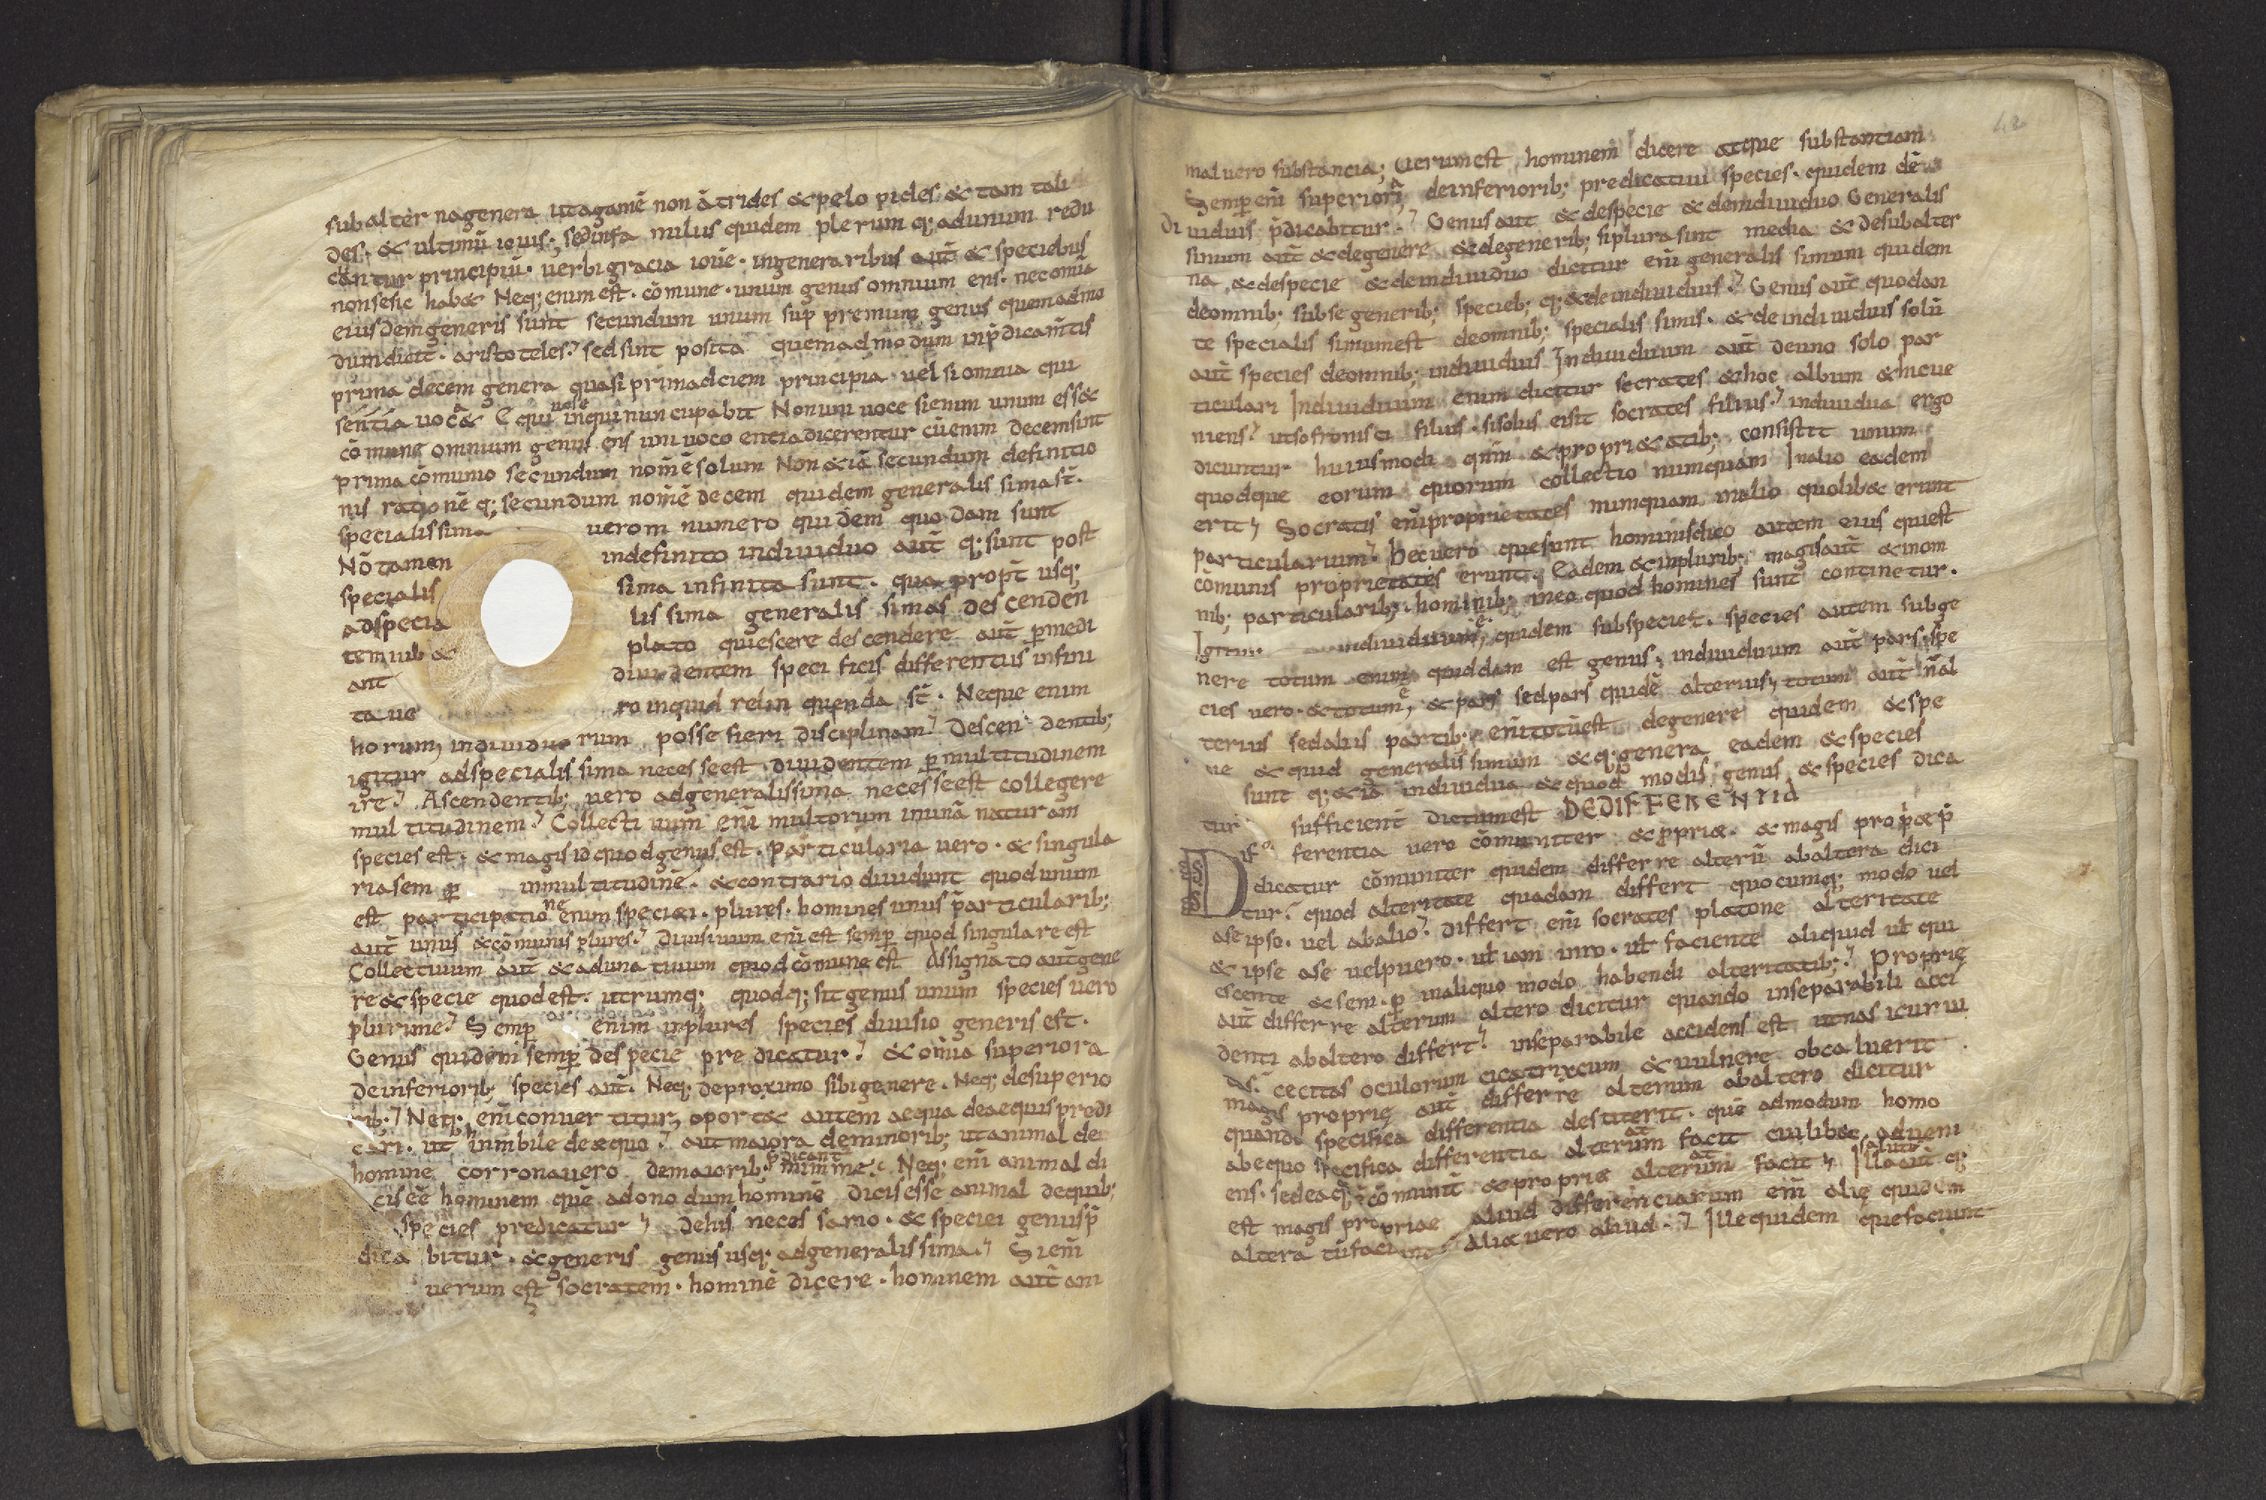 subalter nagenera utagamē non ātrides &pelo pides &tam tali
des. & ultimū iouis. sedinfa milus quidem plerum q; adunum redu
cantur principiū. uerbigracia ioūe. ingeneraribus aut̄ & speciebus
nonsesic hab& Neq; enim est. cōmune. unum genus omnium ens. necomīa
eiusdemgeneris sunt secundum unum sup premum genus quemadmo
dumdicit. aristoteles. sedsint posita quemadmodum inp̄dicam̄tis
prima decem genera quasi primadciem principia uel siomnia qui
sēntīa uoc& Equi uoce inquinuncupabit Nonuniuoce sienim unum ess&
cōmune omnium genus ens uniuoco entiadicerentur cūenim decemsint
prima cōmunio secundum nomē solum Non&iā secundum definitio
nis rationē q; secundum nomē decem quidem generalissimast̄.
specialissima uerom numero quidem quodam sunt
Nōtamen indefinito indiuiduo aut̄ q; sunt post
specialis sima infinita sunt. qua prop̄t usq;
adspecia lissima generalis simas descenden
temiub& plato quiescere descendere aut̄ p̄medi
ant diuidentem speci ficis differentiis infini
ta ue ro inquid relin quenda st̄. Neque enim
horum indiuiduorum posse fieri disciplinam. Descen dentib;
igitur adspecialissima necesseest diuidentem p̄multitudinem
ire. Ascendentib; uero adgeneralissima necesseest collegere
multitudinem. Collectiuum enī multorum inunā naturam
species est. & magis idquodgenus est. particularia uero. & singula
riasem p̄ inmultitudinē. &contrario diuidunt quodunum
est participatione enim speciei. plures. homines unus p̄articularib;
aut̄ unus &cōmunis plures. Diuisiuum enī est semp̄ quod singulare est
Collectiuum aut̄ &aduna tiuum quod cōmune est Assignato aut̄gene
re&specie quodest. utrumq; quodq; sitgenus unum species uero
plurime. Semp̄ enim inplures species diuisio generis est.
Genus quidem semp̄ despecie predicatur. &omīa superiora
deinferiorib; species aut̄. Neq; deproximo sibigenere. Neq; desuperio
rib; Neq; enī conuertitur, oport& autem aequa deaequis predi
cari. ut hinnibile deequo. aut maiora deminorib; utanimal de
homine corronauero demaiorib; p̄dicant̄ minime. Neq; enī animal di
cis eē hominem quē adono dum hominē dicis esse animal dequib;
species predicatur. Dehis neces sario. & speciei genusp̄
dica bitur. &generis genus usq; adgeneralissima. Sienī
uerum est socratem. hominē dicere. hominem aut̄ ani
maluero substancia; uerumest hominem dicere atque substantiam
Semp̄enī superiora deinferiorib; predicatiui species. quidem de
di uiduis p̄dicabitur. Genus aut & despecie & deindiuiduo Generalis
simum aut̄ &degenere &degenerib; siplurasint media & desubalter
na &despecie &deindiuiduo dicitur enī generalis simum quidem
deomnib; subse generib; specieb; q; &deindiuiduis. Genus aut̄ quodan
te specialis simumest deomnib; specialis simis. & deindiuiduis solū
aut̄ species deomnib; indiuiduis Indiuiduum aut̄ deuno solo par
ticulari Indiuiduum enim dicitur socrates &hoc album &hicue
niens. utsofronisci filius. sisolus eisit socrates filius. indiuidua ergo
dicuntur huiusmodi qn̄m &propri&atib; consistit unum
quodque eorum quorum collectio numquam Inalio eadem
erit Socratis enī proprietates numquam inalio quolib& erunt
particularium. Hecuero quesunt hominisdico autem eius quiest
cōmunis proprietates erunt. Eadem &inplurib; magisaut̄ &inom
nib; particularib; hominib; ineo quod homines sunt continetur.
Igitur indiuiduum quidem subspecie&. species autem subge
nere totum enim quiddam est genus. indiuiduum aut̄ pars. spe
cies uero. &totum, &pars sedpars quidē alterius, totum aut̄ n̄al
terius sedaliis partib; enītotūest degenere quidem &spe
ne &quid generalissimum &q; genera eadem &species
sunt q; &iā indiuidua &quod modis genus &species dica
tur sufficient dictumest DEDIFFERENTIA
Dif ferentia uero cōmuniter &propriae. &magis prop̄&p̄
dicatur cōmuniter quidem differre alterū abaltera dici
tur. quod alteritate quadam differt quocumq; modo uel
aseipso. uel abalio. differt enī socrates platone alteritate
&ipse ase uelpuero. ul̄ iam uiro. ul̄ faciente aliquid ul̄ qui
escente &sem. p̄ inaliquo modo habendi alteritatib; Proprię
aut̄ differre alterum altero dicitur quando inseparabili acci
denti abaltero differt. inseparabile accidens est utnas icurui
as. cecitas oculorum cicatrixcum &uulnere obcaluerit
magis proprię aut̄ differre alterum abaltero dicitur
quando specifica differentia destiterit. quē admodum homo
abequo specifica differentia alterum facit cuilib& adueni
ens. sedeaq; cōmunit̄ &propriae alterum facit Illa aut̄ q;
est magis propriae aliud differenciarum enī alię quidem
altera tūfaciunt Aliae uero aliud. Illequidem quefaciunt